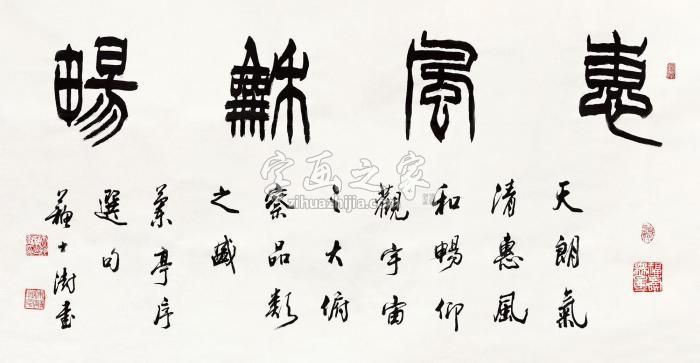 惠風龢暢
天朗氣
清惠風
和暢仰
觀宇宙
之大俯
察品類
之盛
蘭亭序
選句
蘇士澍書
字画之家
zihuashijia.com